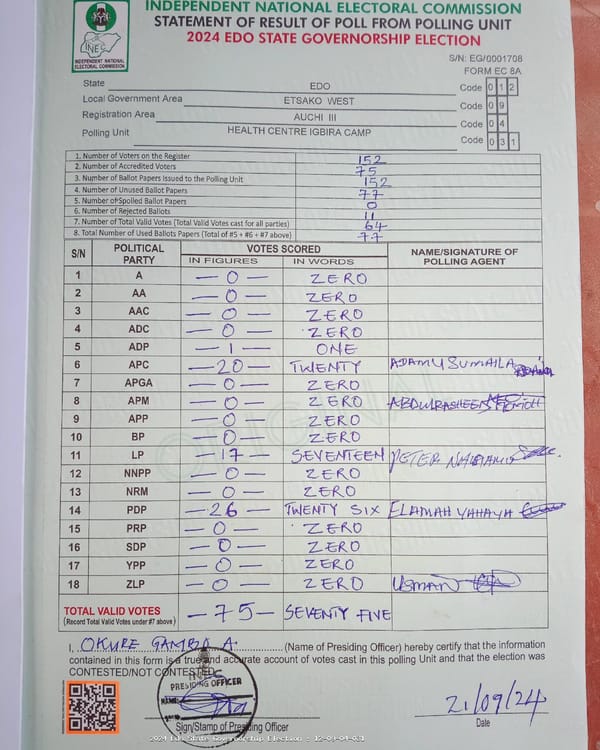 INDEPENDENT NATIONAL ELECTORAL COMMISSION
STATEMENT OF RESULT OF POLL FROM POLLING UNIT
2024 EDO STATE GOVERNORSHIP ELECTION
INEC
INDEPENDENT NATIONAL
ELECTORAL COMMISSION
S/N: EG/0001708
FORM EC 8A
State EDO Code 0 1 2
Local Government Area ETSAKO WEST Code 0 9
Registration Area AUCHI III Code 0 4
Polling Unit HEALTH CENTRE IGBIRA CAMP Code 0 3 1
1. Number of Voters on the Register 152
2. Number of Accredited Voters 75
3. Number of Ballot Papers Issued to the Polling Unit 152
4. Number of Unused Ballot Papers 77
5. Number of Spoiled Ballot Papers 0
6. Number of Rejected Ballots 11
7. Number of Total Valid Votes (Total Valid Votes cast for all parties) 64
8. Total Number of Used Ballots Papers (Total of #5 + #6 + #7 above) 77
S/N POLITICAL PARTY VOTES SCORED NAME/SIGNATURE OF POLLING AGENT
IN FIGURES IN WORDS
1 A — 0 — ZERO
2 AA — 0 — ZERO
3 AAC — 0 — ZERO
4 ADC — 0 — ZERO
5 ADP — 1 — ONE
6 APC — 20 — TWENTY ADAMU SUMAILA
7 APGA — 0 — ZERO
8 APM — 0 — ZERO ABDULRASHEED
9 APP — 0 — ZERO
10 BP — 0 — ZERO
11 LP — 17 — SEVENTEEN PETER
12 NNPP — 0 — ZERO
13 NRM — 0 — ZERO
14 PDP — 26 — TWENTY SIX ELAMAH YAHAYA
15 PRP — 0 — ZERO
16 SDP — 0 — ZERO
17 YPP — 0 — ZERO
18 ZLP — 0 — ZERO USMAN
TOTAL VALID VOTES — 75 — SEVENTY FIVE
(Record Total Valid Votes under #7 above)
I, OKURE GAMBO A. (Name of Presiding Officer) hereby certify that the information
contained in this form is a true and accurate account of votes cast in this polling Unit and that the election was
CONTESTED/NOT CONTESTED.
INEC
PRESIDING OFFICER
NAME:
Sign/Stamp of Presiding Officer
21/09/24
Date
2024 Edo State Governorship Election : 12-09-04-031